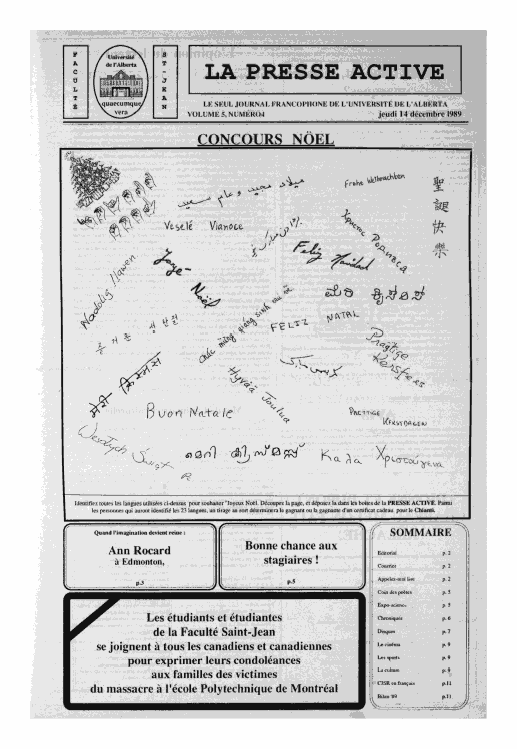 FACULTÉ
Université
de l'Alberta
quaecumque
vera
ST-JEAN
LA PRESSE ACTIVE
LE SEUL JOURNAL FRANCOPHONE DE L'UNIVERSITÉ DE L'ALBERTA
VOLUME 5, NUMÉRO4
jeudi 14 décembre 1989
CONCOURS NÖEL
ميلاد مجيد و عام سعيد
Frohe Weihnachten
聖誕快樂
Veselé Vianoce
Feliz Navidad
Nadolig Llawen
Joye-
Noël
chúc mừng giáng sinh vui vẻ
FELIZ NATAL
즐거운 성탄절
Pragtige
Kersfees
मेरी क्रिसमस
Hyvää Joulua
Buon Natale
PRETTIGE
KERSTDAGEN
Wesołych Świąt
മെറി ക്രിസ്മസ്സ്
Καλα Χριστούγενα
Identifiez toutes les langues utilisées ci-dessus pour souhaiter "Joyeux Noël. Découpez la page, et déposez la dans les boites de la PRESSE ACTIVE. Parmi
les personnes qui auront identifié les 23 langues, un tirage au sort déterminera la gagnant ou la gagnante d'un certificat cadeau pour le Chianti.
Quand l'imagination devient reine :
Ann Rocard
à Edmonton,
p.3
Bonne chance aux
stagiaires !
p.5
SOMMAIRE
Editorial p. 2
Courrier p. 2
Appelez-moi lise p. 2
Coin des poètes p. 5
Expo-science p. 5
Chroniques p. 6
Disques p. 7
Le cinéma p. 8
Les sports p. 8
La culture p. 8
CJSR en français p.11
Bilan '89 p.11
Les étudiants et étudiantes
de la Faculté Saint-Jean
se joignent à tous les canadiens et canadiennes
pour exprimer leurs condoléances
aux familles des victimes
du massacre à l'école Polytechnique de Montréal